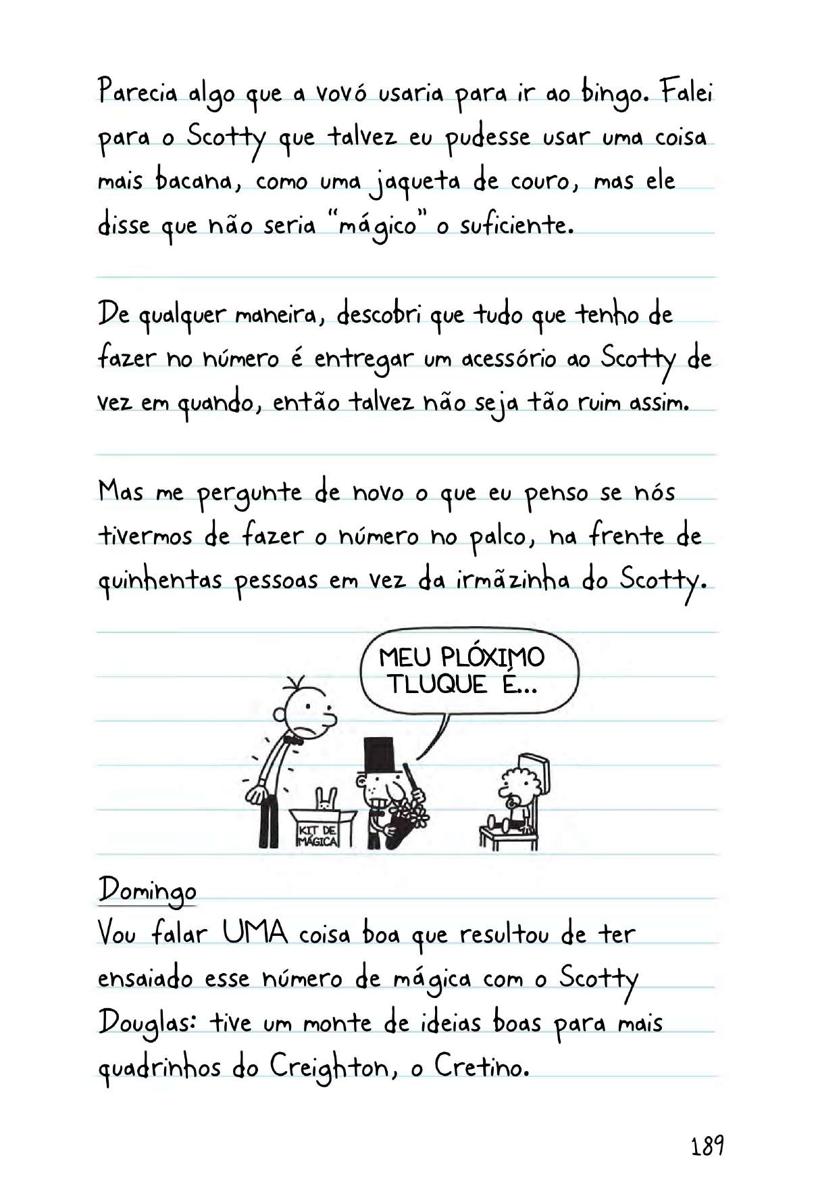 Parecia algo que a vovó usaria para ir ao bingo. Falei
para o Scotty que talvez eu pudesse usar uma coisa
mais bacana, como uma jaqueta de couro, mas ele
disse que não seria “mágico” o suficiente.
De qualquer maneira, descobri que tudo que tenho de
fazer no número é entregar um acessório ao Scotty de
vez em quando, então talvez não seja tão ruim assim.
Mas me pergunte de novo o que eu penso se nós
tivermos de fazer o número no palco, na frente de
quinhentas pessoas em vez da irmãzinha do Scotty.
MEU PLÓXIMO
TLUQUE É...
KIT DE
MÁGICA
Domingo
Vou falar UMA coisa boa que resultou de ter
ensaiado esse número de mágica com o Scotty
Douglas: tive um monte de ideias boas para mais
quadrinhos do Creighton, o Cretino.
189